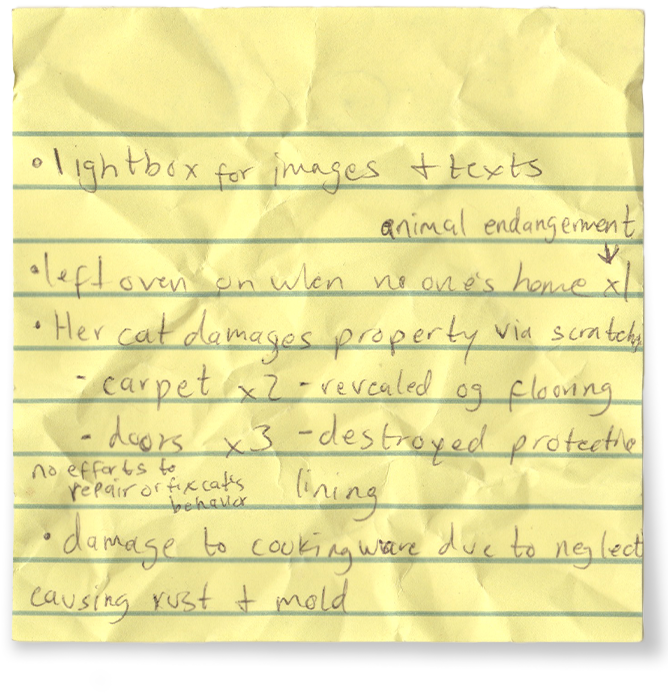 • lightbox for images + texts
animal endangerment
↓
• left oven on when no one's home x1
• Her cat damages property via scratchs
- carpet x2 - revealed og flooring
- doors x3 - destroyed protective
no efforts to
repair or fix cats
behavior
lining
• damage to cookingware due to neglect
causing rust + mold